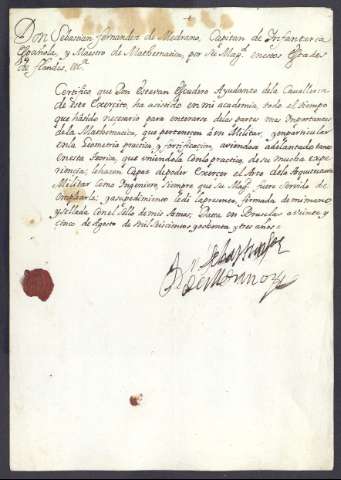 Don Sebastian fernandez de Medrano, Capitan de Infanteria
Española, y Maestro de Mathematicas, por Su Magd. en estos Estados
de flandes, etca.
Certifico que Don Estevan Escudero Ayudante de la Cavalleria
de este Exercito, ha asistido en mi academia, todo el tiempo
que ha sido necesario para enterarse de las partes mas Importantes
de la Mathematica, que pertenecen a un Militar, y en particular
en la Geometria practica, y fortificacion, aviendose adelantado tanto
en esta Teorica, que uniendola con lo practico de su mucha expe
riencia, le hacen Capaz de poder Exercer el Arte de la Arquitectura
Militar como Ingeniero, siempre que Su Magd. fuere Servido de
Emplearle; y a su pedimiento le di la presente, firmada de mi mano
y sellada con el sello de mis Armas, Fecha en Bruselas a veinte y
cinco de Agosto de mil seiscientos y ochenta y tres años
Dn. Sebastian fer
de Medrano